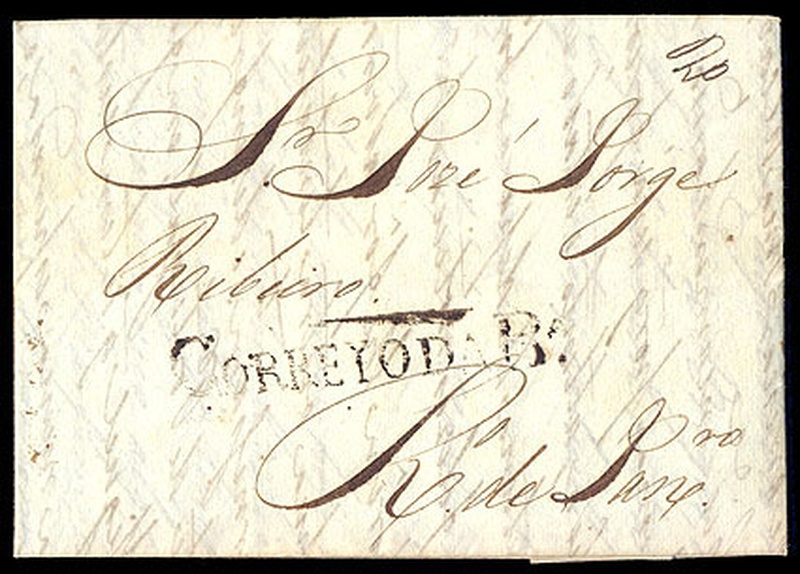 20
Sr. Jozé Jorge
Ribeiro.
CORREYO DA Ba.
Ro. de Janro.